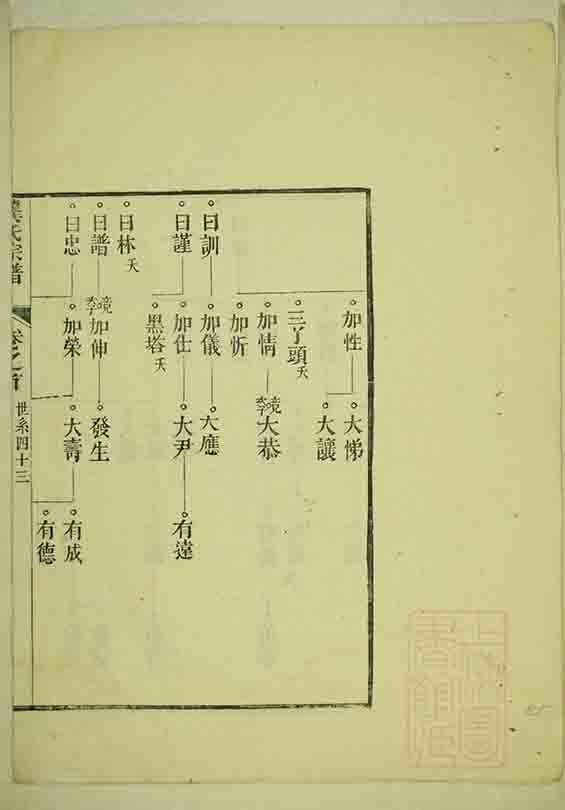 加性
大悌
大讓
三丫頭 夭
加情
大恭
加忻
曰訓
加儀
大應
曰謹
加仕
大尹
有達
黑塔 夭
曰林 夭
曰譜
加伸
發生
曰忠
加榮
大壽
有成
有德
氏宗譜
卷之首
世系四十三